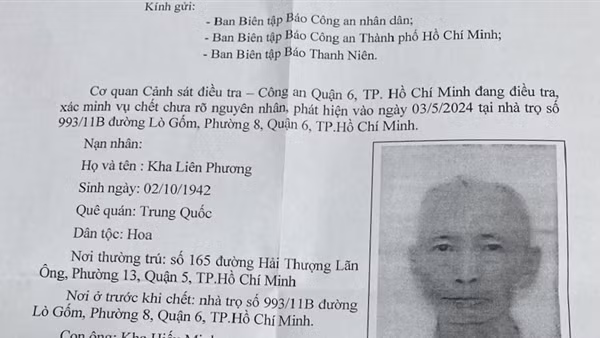 Kính gửi:
- Ban Biên tập Báo Công an nhân dân;
- Ban Biên tập Báo Công an Thành phố Hồ Chí Minh;
- Ban Biên tập Báo Thanh Niên.
Cơ quan Cảnh sát điều tra – Công an Quận 6, TP. Hồ Chí Minh đang điều tra,
xác minh vụ chết chưa rõ nguyên nhân, phát hiện vào ngày 03/5/2024 tại nhà trọ số
993/11B đường Lò Gốm, Phường 8, Quận 6, TP.Hồ Chí Minh.
Nạn nhân:
Họ và tên : Kha Liên Phương
Sinh ngày: 02/10/1942
Quê quán: Trung Quốc
Dân tộc: Hoa
Nơi thường trú: số 165 đường Hải Thượng Lãn
Ông, Phường 13, Quận 5, TP.Hồ Chí Minh
Nơi ở trước khi chết: nhà trọ số 993/11B đường
Lò Gốm, Phường 8, Quận 6, TP.Hồ Chí Minh.
Con ông: Kha Hiếu